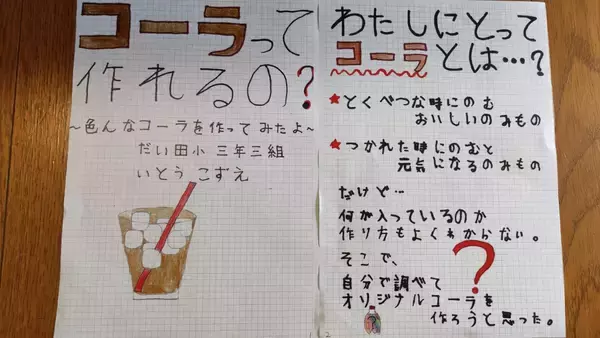 コーラって
作れるの?
~色んなコーラを作ってみたよ~
だい田小 三年三組
いとう こずえ
1
わたしにとって
コーラとは…?
★とくべつな時にのむ
おいしいのみもの
★つかれた時にのむと
元気になるのみもの
だけど…
何が入っているのか
作り方もよくわからない。
そこで、
?
自分で調べて
オリジナルコーラを
作ろうと思った。
2